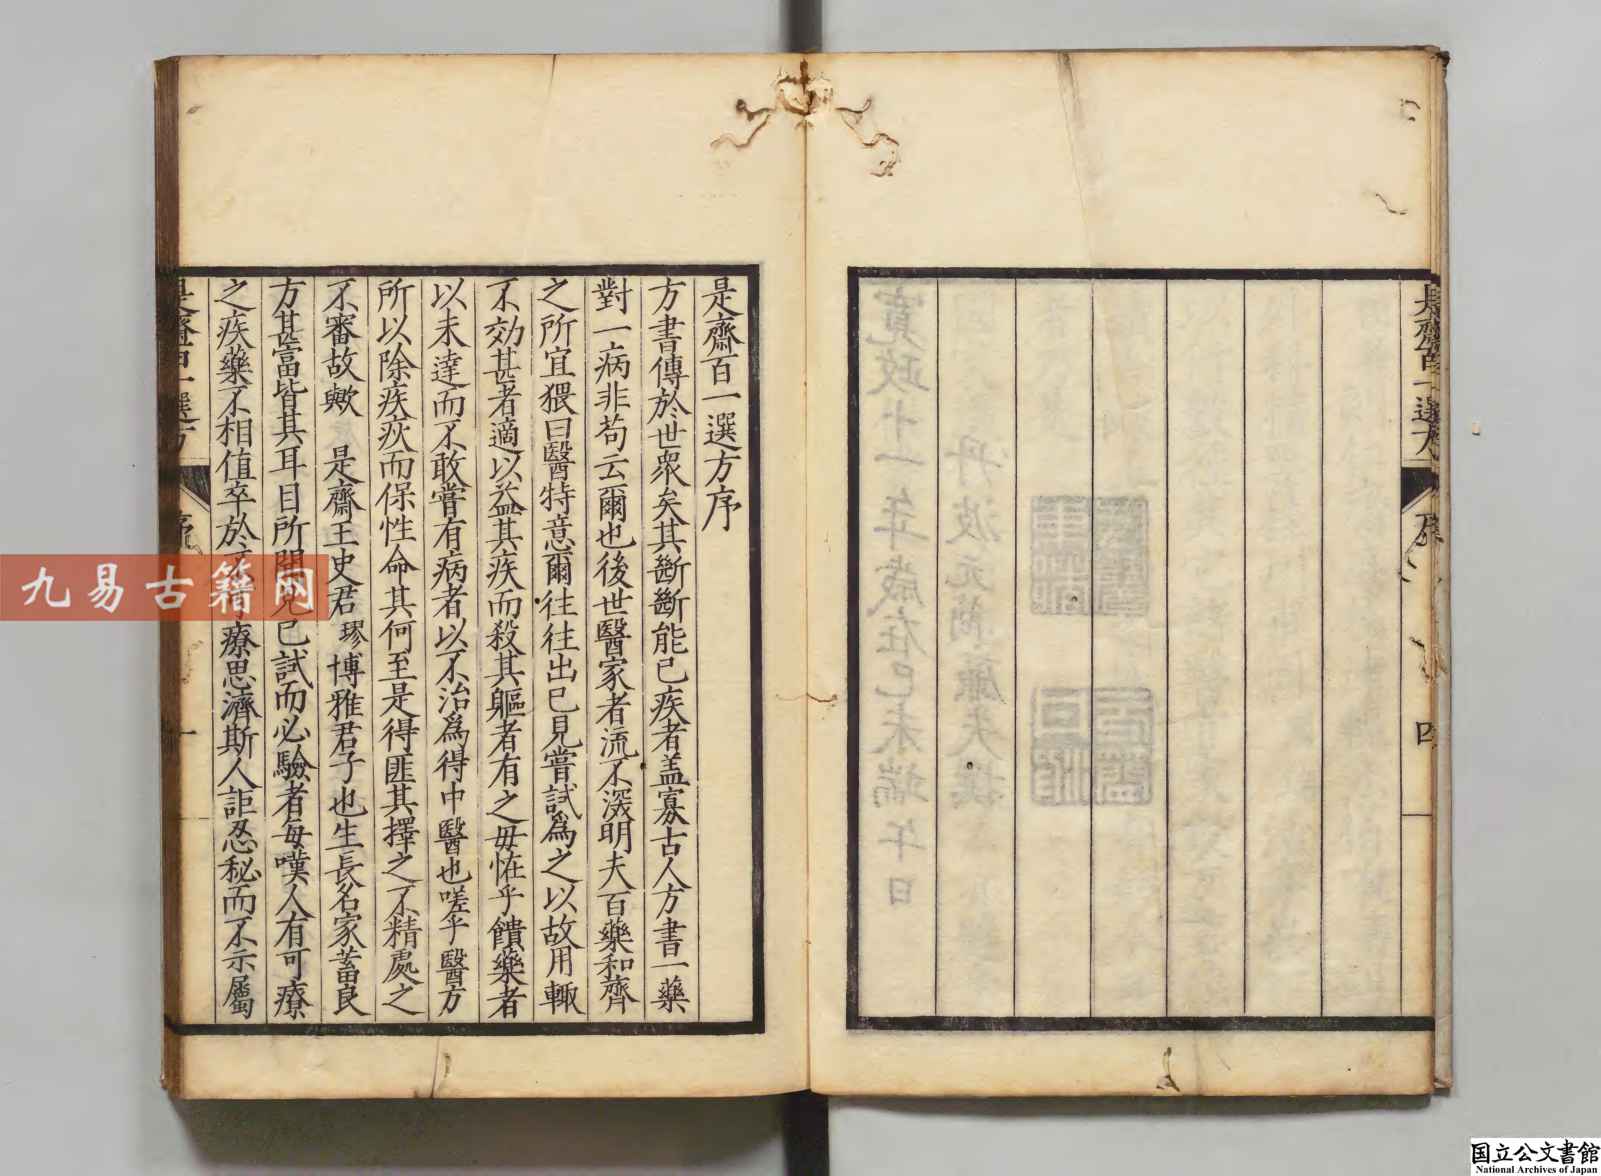 是齋百一選方
序
四
是齋百一選方序
方書傳於世衆矣其斷斷能已疾者盖寡古人方書一藥
對一病非苟云爾也後世醫家者流不深明夫百藥和齊
之所宜猥曰醫特意爾往往出已見嘗試爲之以故用輙
不効甚者適以益其疾而殺其軀者有之毋恠乎饋藥者
以未達而不敢嘗有病者以不治爲得中醫也嗟乎醫方
所以除疾疢而保性命其何至是得匪其擇之不精處之
不審故歟 是齋王史君璆博雅君子也生長名家蓄良
方甚富皆其耳目所聞見已試而必驗者每嘆人有可療
之疾藥不相值卒於不療思濟斯人詎忍秘而不示屬
是齋百一選方
序
一
九易古籍网
国立公文書館
National Archives of Japan